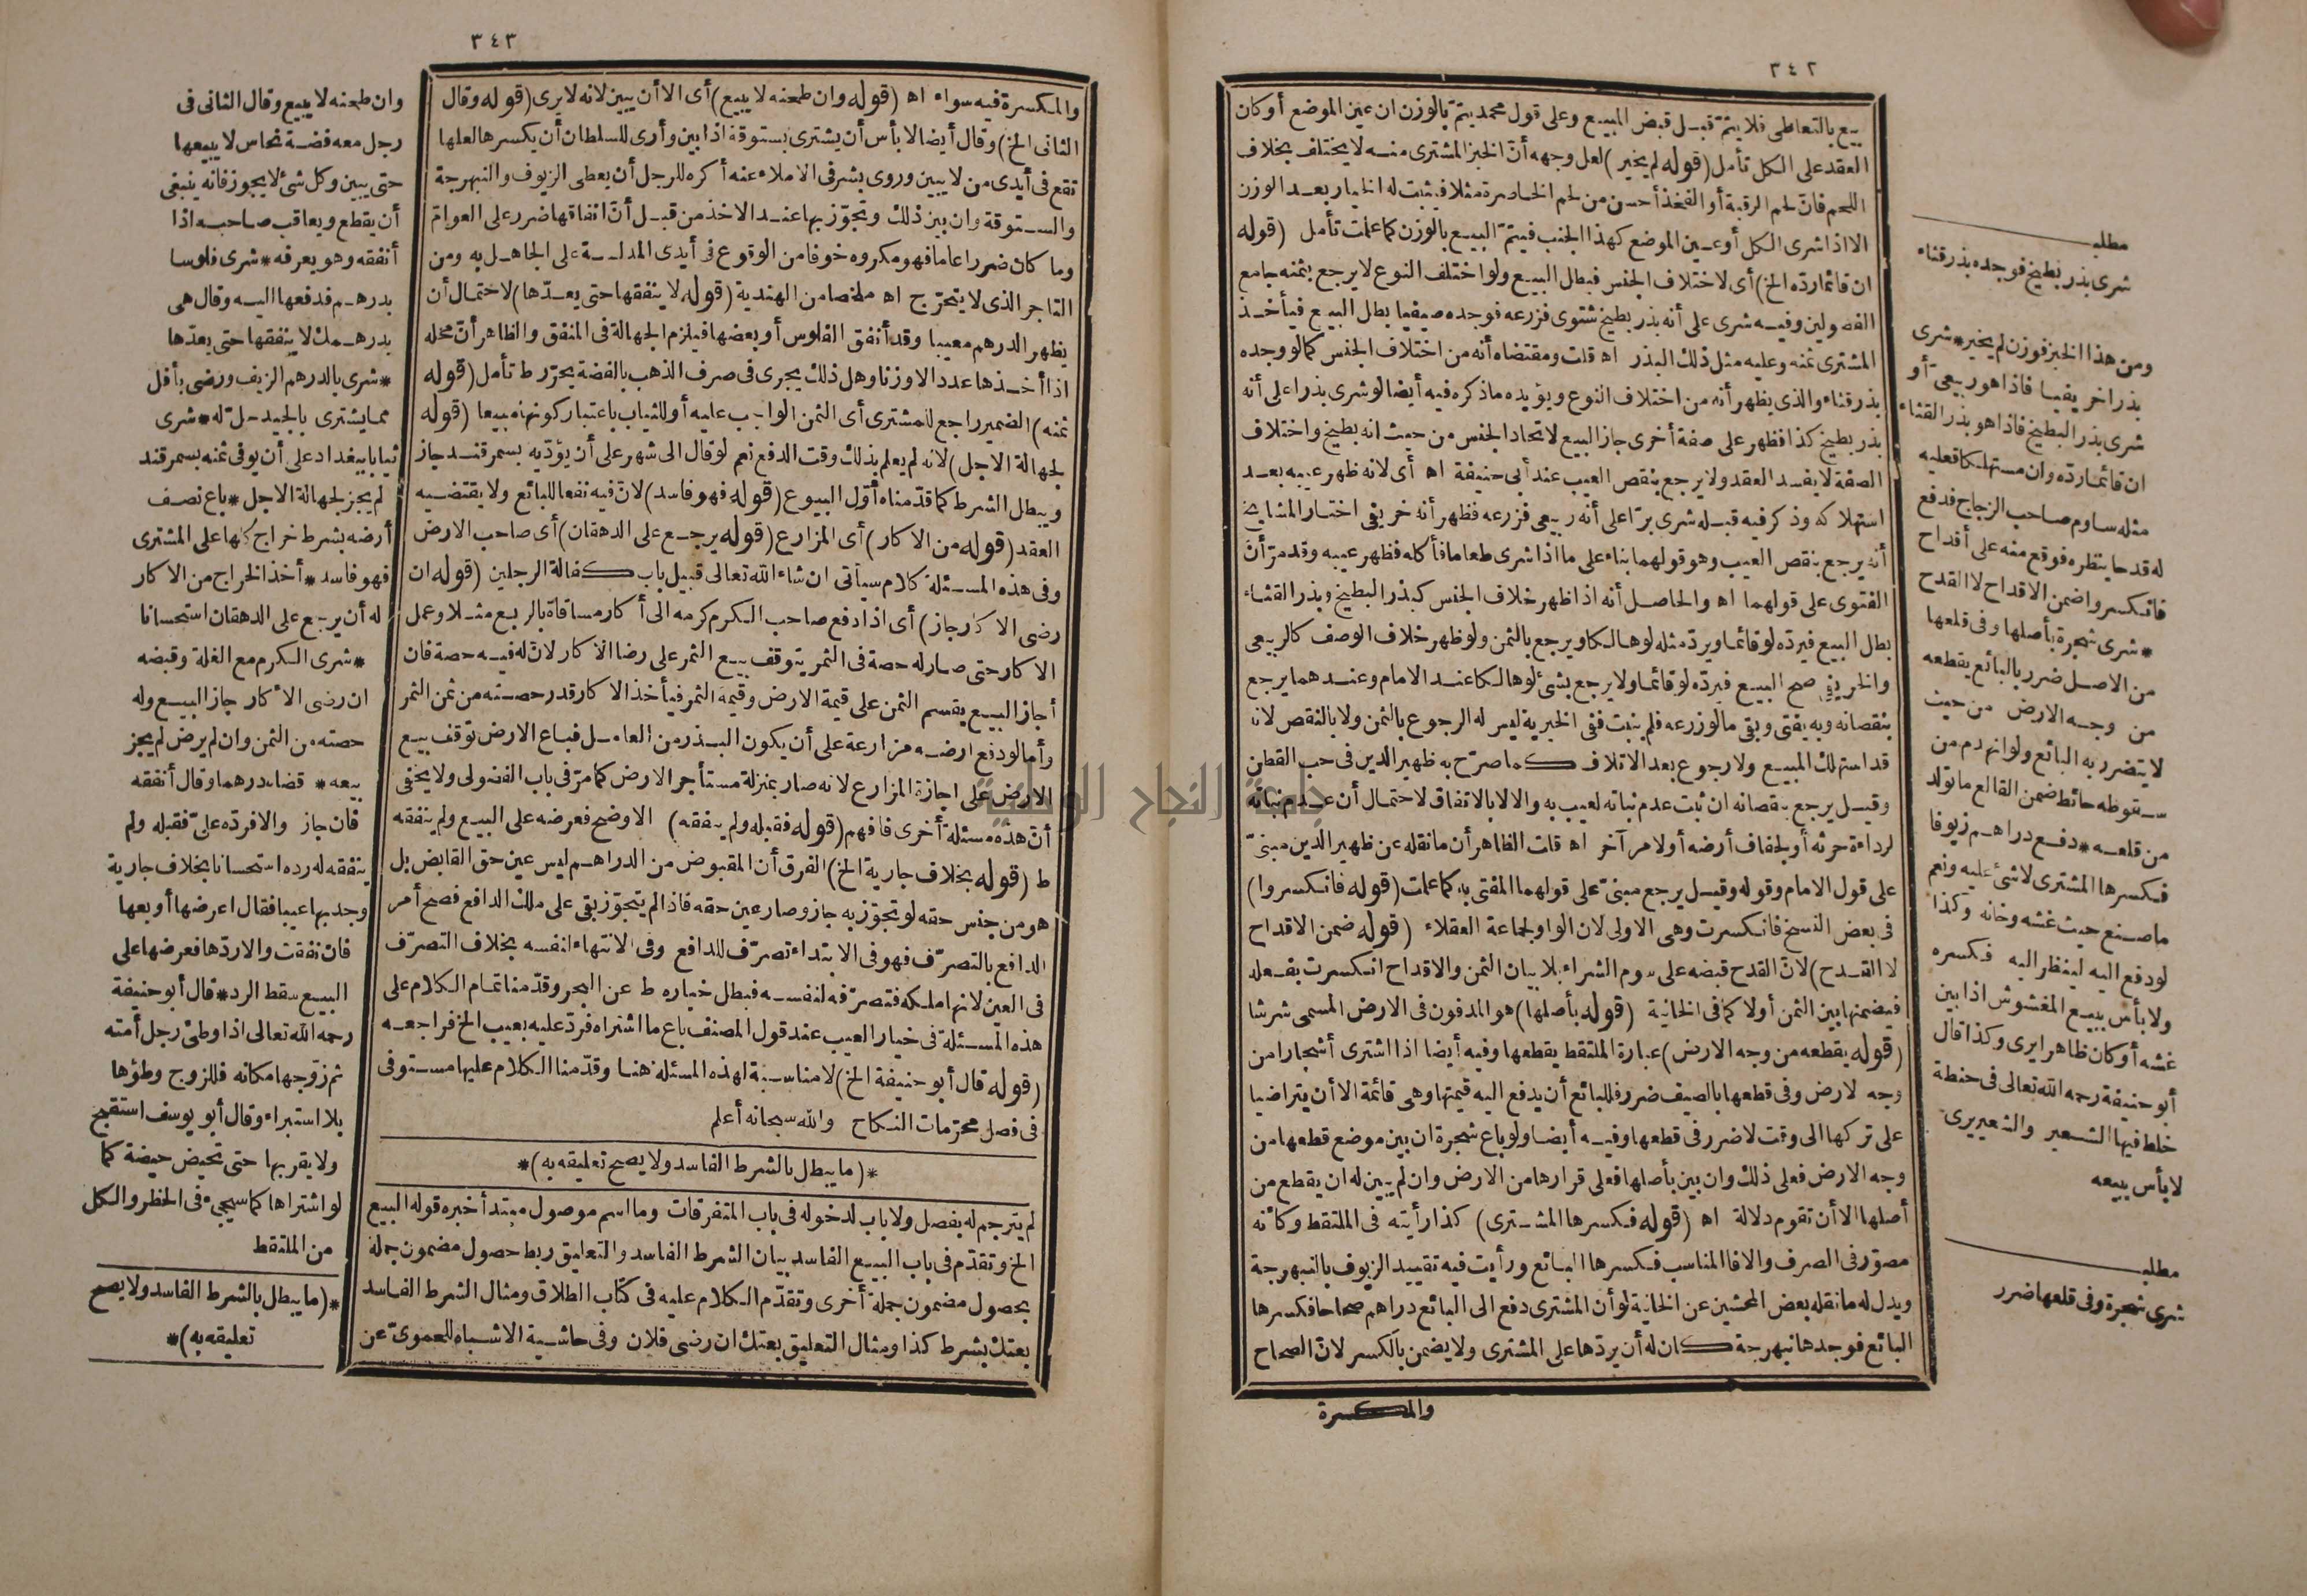 ٣٤٢
بيع بالتعاطى فلا يتم قبل قبض المبيع وعلى قول محمد يتم بالوزن ان عين الموضع أو كان
العقد على الكل تأمل (قوله لم يخير) لعل وجهه أن الخبز المشترى منه لا يختلف بخلاف
اللحم فان لحم الرقبة أو الفخذ أحسن من لحم الخاصرة مثلا فيثبت له الخيار بعد الوزن
الا اذا شرى الكل أو عين الموضع كهذا الجنب فيتم البيع بالوزن كما علمت تأمل (قوله
ان قائما رده الخ) أى لاختلاف الجنس فبطل البيع ولو اختلف النوع لا يرجع بثمنه جامع
الفصولين وفيه شرى على أنه بذر بطيخ شتوى فزرعه فوجده صيفيا بطل البيع فيأخذ
المشترى ثمنه وعليه مثل ذلك البذر اه قلت ومقتضاه أنه من اختلاف الجنس كما لو وجده
بذر قثاء والذى يظهر أنه من اختلاف النوع ويؤيده ما ذكره فيه أيضا لو شرى بذرا على أنه
بذر بطيخ كذا فظهر على صفة أخرى جاز البيع لاتحاد الجنس من حيث انه بطيخ واختلاف
الصفة لا يفسد العقد ولا يرجع بنقص العيب عند أبى حنيفة اه أى لانه ظهر عيبه بعد
استهلاكه وذكر فيه قبله شرى برا على أنه ربيعى فزرعه فظهر أنه خريفى اختار المشايخ
أنه يرجع بنقص العيب وهو قولهما بناء على ما اذا شرى طعاما فأكله فظهر عيبه وقد مر أن
الفتوى على قولهما اه والحاصل أنه اذا ظهر خلاف الجنس كبذر البطيخ وبذر القثاء
بطل البيع فيرده لو قائما ويرد مثله لو هالكا ويرجع بالثمن ولو ظهر خلاف الوصف كالربيعى
والخريفى صح البيع فيرده لو قائما ولا يرجع بشئ لو هالكا عند الامام وعندهما يرجع
بنقصانه وبه يفتى وبقى ما لو زرعه فلم ينبت ففى الخيرية ليس له الرجوع بالثمن ولا بالنقص لانه
قد استهلك المبيع ولا رجوع بعد الاتلاف كما صرح به ظهير الدين فى حب القطن
وقيل يرجع بنقصانه ان ثبت عدم نباته لعيب به والا لا بالاتفاق لاحتمال أن عدم نباته
لرداءة حرثه أو لجفاف أرضه أو لامر آخر اه قلت الظاهر أن ما نقله عن ظهير الدين مبنى
على قول الامام وقوله وقيل يرجع مبنى على قولهما المفتى به كما علمت (قوله فانكسروا)
فى بعض النسخ فانكسرت وهى الاولى لان الواو لجماعة العقلاء (قوله ضمن الاقداح
لا القدح) لان القدح قبضه على سوم الشراء بلا بيان الثمن والاقداح انكسرت بفعله
فيضمنها بين الثمن أولا كما فى الخانية (قوله بأصلها) هو المدفون فى الارض المسمى شرشا
(قوله يقطعه من وجه الارض) عبارة الملتقط يقطعها وفيه أيضا اذا اشترى أشجارا من
وجه الارض وفى قطعها بالصيف ضرر فللبائع أن يدفع اليه قيمتها وهى قائمة الا أن يتراضيا
على تركها الى وقت لا ضرر فى قطعها وفيه أيضا ولو باع شجرة ان بين موضع قطعها من
وجه الارض فعلى ذلك وان بين بأصلها فعلى قرارها من الارض وان لم يبين له ان يقطع من
أصلها الا أن تقوم دلالة اه (قوله فكسرها المشترى) كذا رأيته فى الملتقط وكأنه
مصور فى الصرف والا فالمناسب فكسرها البائع ورأيت فيه تقييد الزيوف بالنبهرجة
ويدل له ما نقله بعض المحشين عن الخانية لو أن المشترى دفع الى البائع دراهم صحاحا فكسرها
البائع فوجدها نبهرجة كان له أن يردها على المشترى ولا يضمن بالكسر لان الصحاح
والمكسرة
مطلب
شرى بذر بطيخ فوجده بذر قثاء
ومن هذا الخبز فوزن لم يخير * شرى
بذرا خريفيا فاذا هو ربيعى أو
شرى بذر البطيخ فاذا هو بذر القثاء
ان قائما رده وان مستهلكا فعليه
مثله ساوم صاحب الزجاج فدفع
له قدحا ينظره فوقع منه على أقداح
فانكسروا ضمن الاقداح لا القدح
* شرى شجرة بأصلها وفى قلعها
من الاصل ضرر بالبائع يقطعه
من وجه الارض من حيث
لا يتضرر به البائع ولو انهدم من
سقوطه حائط ضمن القالع ما تولد
من قلعه * دفع دراهم زيوفا
فكسرها المشترى لا شئ عليه ونعم
ما صنع حيث غشه وخانه وكذا
لو دفع اليه لينظر اليه فكسره
ولا بأس ببيع المغشوش اذا بين
غشه أو كان ظاهرا يرى وكذا قال
أبو حنيفة رحمه الله تعالى فى حنطة
خلط فيها الشعير والشعير يرى
لا بأس ببيعه
مطلب
شرى شجرة وفى قلعها ضرر
٣٤٣
والمكسرة فيه سواء اه (قوله وان طحنه لا يبيع) أى الا أن يبين لانه لا يرى (قوله وقال
الثانى الخ) وقال أيضا لا بأس أن يشترى بستوقة اذا بين وأرى للسلطان أن يكسرها لعلها
تقع فى أيدى من لا يبين وروى بشر فى الاملاء عنه أكره للرجل أن يعطى الزيوف والنبهرجة
والستوقة وان بين ذلك وتجوز بها عند الاخذ من قبل أن انفاقها ضرر على العوام
وما كان ضررا عاما فهو مكروه خوفا من الوقوع فى أيدى المدلسة على الجاهل به ومن
التاجر الذى لا يتحرج اه ملخصا من الهندية (قوله لا ينفقها حتى يعدها) لاحتمال أن
يظهر الدرهم معيبا وقد أنفق الفلوس أو بعضها فيلزم الجهالة فى المنفق والظاهر أن محله
اذا أخذها عددا لا وزنا وهل ذلك يجرى فى صرف الذهب بالفضة يحرر ط تأمل (قوله
ثمنه) الضمير راجع للمشترى أى الثمن الواجب عليه أو للثياب باعتبار كونها مبيعا (قوله
لجهالة الاجل) لانه لم يعلم بذلك وقت الدفع نعم لو قال الى شهر على أن يؤديه بسمرقند جاز
ويبطل الشرط كما قدمناه أول البيوع (قوله فهو فاسد) لان فيه نفعا للبائع ولا يقتضيه
العقد (قوله من الاكار) أى المزارع (قوله يرجع على الدهقان) أى صاحب الارض
وفى هذه المسئلة كلام سيأتى ان شاء الله تعالى قبيل باب كفالة الرجلين (قوله ان
رضى الاكار جاز) أى اذا دفع صاحب الكرم كرمه الى أكار مساقاة بالربع مثلا وعمل
الاكار حتى صار له حصة فى الثمر يتوقف بيع الثمر على رضا الاكار لان له فيه حصة فان
أجاز البيع يقسم الثمن على قيمة الارض وقيمة الثمر فيأخذ الاكار قدر حصته من ثمن الثمر
وأما لو دفع ارضه مزارعة على أن يكون البذر من العامل فباع الارض توقف بيع
الارض على اجازة المزارع لانه صار بمنزلة مستأجر الارض كما مر فى باب الفضولى ولا يخفى
أن هذه مسئلة أخرى فافهم (قوله فقبله ولم ينفقه) الاوضح فعرضه على البيع ولم ينفقه
ط (قوله بخلاف جارية الخ) الفرق أن المقبوض من الدراهم ليس عين حق القابض بل
هو من جنس حقه لو تجوز به جاز وصار عين حقه فاذا لم يتجوز بقى على ملك الدافع فصح أمر
الدافع بالتصرف فهو فى الابتداء تصرف للدافع وفى الانتهاء لنفسه بخلاف التصرف
فى العين لانها ملكه فتصرفه لنفسه فبطل خياره ط عن البحر وقدمنا تمام الكلام على
هذه المسئلة فى خيار العيب عند قول المصنف باع ما اشتراه فرد عليه بعيب الخ فراجعه
(قوله قال أبو حنيفة الخ) لا مناسبة لهذه المسئلة هنا وقدمنا الكلام عليها مستوفى
فى فصل محرمات النكاح والله سبحانه أعلم
*(ما يبطل بالشرط الفاسد ولا يصح تعليقه به)*
لم يترجم له بفصل ولا باب لدخوله فى باب المتفرقات وما اسم موصول مبتدأ خبره قوله البيع
الخ وتقدم فى باب البيع الفاسد بيان الشرط الفاسد والتعليق ربط حصول مضمون جملة
بحصول مضمون جملة أخرى وتقدم الكلام عليه فى كتاب الطلاق ومثال الشرط الفاسد
بعتك بشرط كذا ومثال التعليق بعتك ان رضى فلان وفى حاشية الاشباه للحموى عن
وان طحنه لا يبيع وقال الثانى فى
رجل معه فضة نحاس لا يبيعها
حتى يبين وكل شئ لا يجوز فانه ينبغى
أن يقطع ويعاقب صاحبه اذا
أنفقه وهو يعرفه * شرى فلوسا
بدرهم فدفعها اليه وقال هى
بدرهمك لا ينفقها حتى يعدها
* شرى بالدرهم الزيف ورضى بأقل
مما يشترى بالجيد حل له * شرى
ثيابا ببغداد على أن يوفى ثمنه بسمرقند
لم يجز لجهالة الاجل * باع نصف
أرضه بشرط خراج كلها على المشترى
فهو فاسد * أخذ الخراج من الاكار
له أن يرجع على الدهقان استحسانا
* شرى الكرم مع الغلة وقبضه
ان رضى الأكار جاز البيع وله
حصته من الثمن وان لم يرض لم يجز
بيعه * قضاه درهما وقال أنفقه
فان جاز والا فرده على فقبله ولم
ينفقه له رده استحسانا بخلاف جارية
وجد بها عيبا فقال اعرضها أو بعها
فان نفقت والا ردها فعرضها على
البيع سقط الرد * قال أبو حنيفة
رحمه الله تعالى اذا وطئ رجل أمته
ثم زوجها مكانه فللزوج وطؤها
بلا استبراء وقال أبو يوسف استقبح
ولا يقربها حتى تحيض حيضة كما
لو اشتراها كما سيجئ فى الحظر والكل
من الملتقط
*(ما يبطل بالشرط الفاسد ولا يصح
تعليقه به)*
جامعة النجاح الوطنية